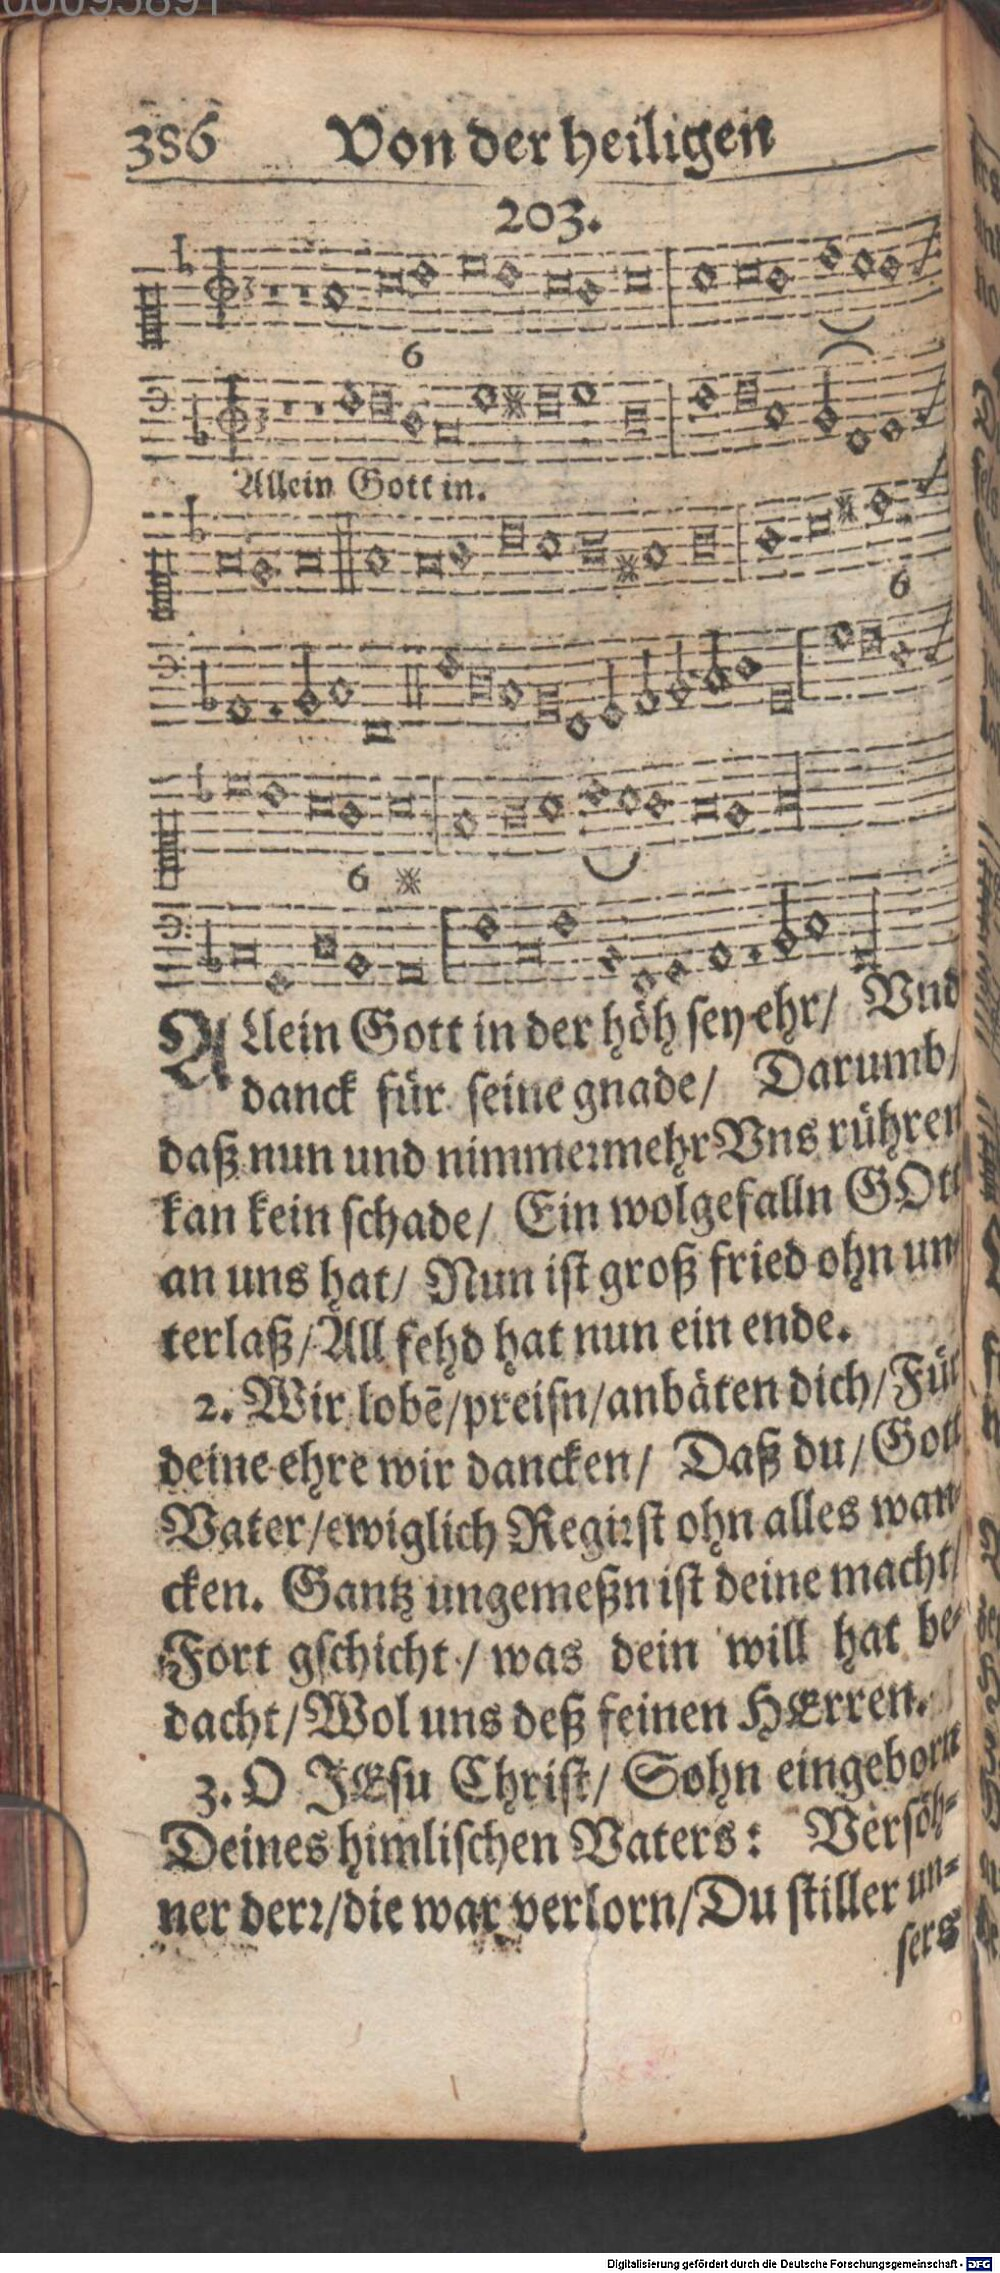 00095891
386 Von der heiligen
203.
6
Allein Gott in.
6
6
Allein Gott in der höh sey ehr/ Vnd
danck für seine gnade/ Darumb/
daß nun und nimmermehr Vns rühren
kan kein schade/ Ein wolgefalln GOtt
an uns hat/ Nun ist groß fried ohn un-
terlaß/ All fehd hat nun ein ende.
2. Wir lobē/preisn/anbäten dich/Für
deine ehre wir dancken/ Daß du/Gott
Vater/ewiglich Regirst ohn alles wan-
cken. Gantz ungemeßn ist deine macht/
Fort gschicht/ was dein will hat be-
dacht/Wol uns deß feinen HErren.
3. O JEsu Christ/ Sohn eingeborn
Deines himlischen Vaters: Versöh-
ner derr/die war verlorn/Du stiller un-
sers
Digitalisierung gefördert durch die Deutsche Forschungsgemeinschaft - DFG